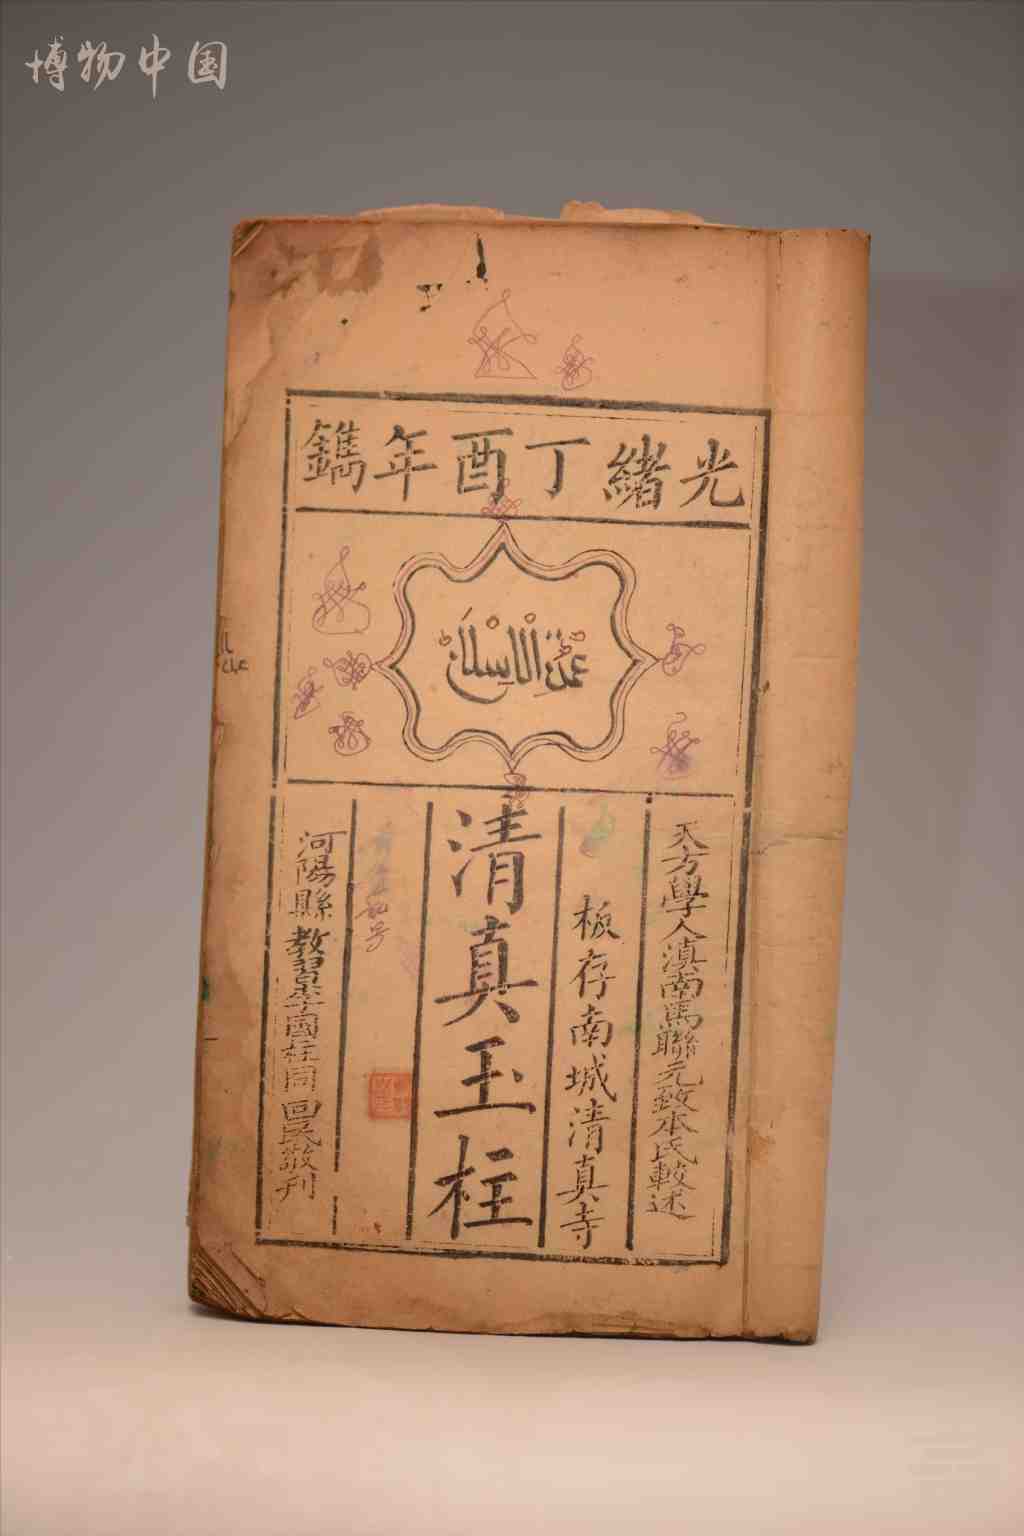 博物中国
光緒丁酉年鐫
عمدة الإسلام
天方學人滇南馬聯元致本氏較述
板存南城清真寺
清真玉柱
河陽縣教習李國柱同回民敬刊